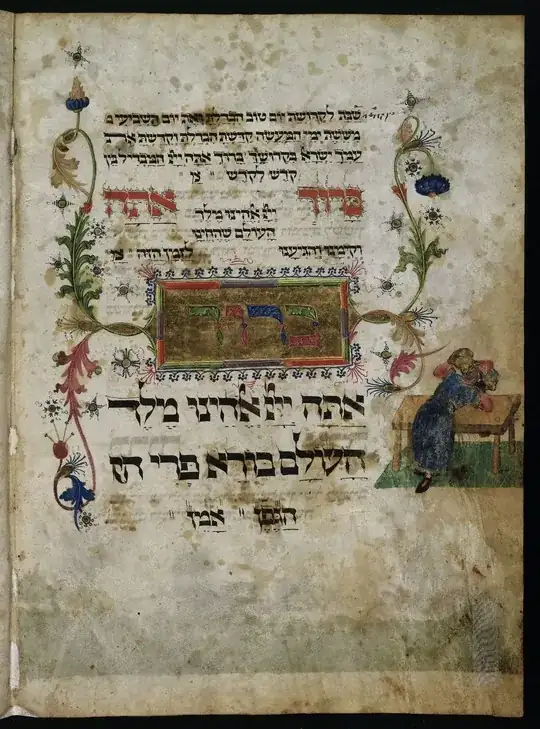 שבת לקדושת יום טוב הבדלת ואת יום השביעי מ
מששת ימי המעשה קדשת הבדלת וקדשת את
עמך ישראל בקדושתך ברוך אתה ייי המבדיל בין
קדש לקדש
ברוך אתה
ייי אלהינו מלך
העולם שהחינו
וקימנו והגיענו לזמן הזה
ברוך
אתה ייי אלהינו מלך
העולם בורא פרי הג
הגפן אמן